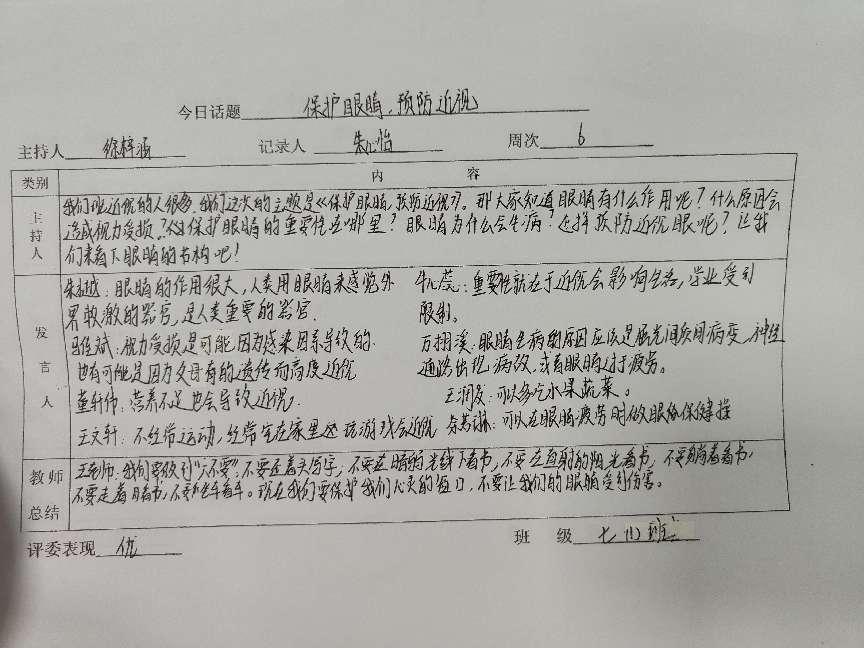 今日话题 保护眼睛,预防近视
主持人 徐梓涵 记录人 朱心怡 周次 6
类别 内容
主持人
我们班近视的人很多,我们这次的主题是《保护眼睛,预防近视》。那大家知道眼睛有什么作用呢?什么原因会
造成视力受损?保护眼睛的重要性在哪里?眼睛为什么会生病?怎样预防近视眼呢?让我
们来看下眼睛的结构吧!
发言人
眼睛的作用很大,人类用眼睛来感觉外
界刺激的器官,是人类重要的器官.
视力受损是可能因为感染因素导致的.
也有可能是因为父母有的遗传而高度近视
董轩伟:营养不足也会导致近视,
王文轩:不经常运动,经常宅在家里还玩游戏会近视
重要性就在于近视会影响生活,学业受到
限制。
眼睛生病的原因应该是屈光间质问病变,神经
通路出现病故,或者眼睛过于疲劳。
可以多吃水果蔬菜。
可以在眼睛疲劳时做眼保健操
教师总结
王老师:我们要做到“六不要”:不要歪着头写字,不要在暗的光线下看书,不要在直射的阳光看书,不要躺着看书,
不要走着看书,不要坐车看书。现在我们要保护我们心灵的窗口,不要让我们的眼睛受到伤害。
评委表现 优 班级 七(1)班